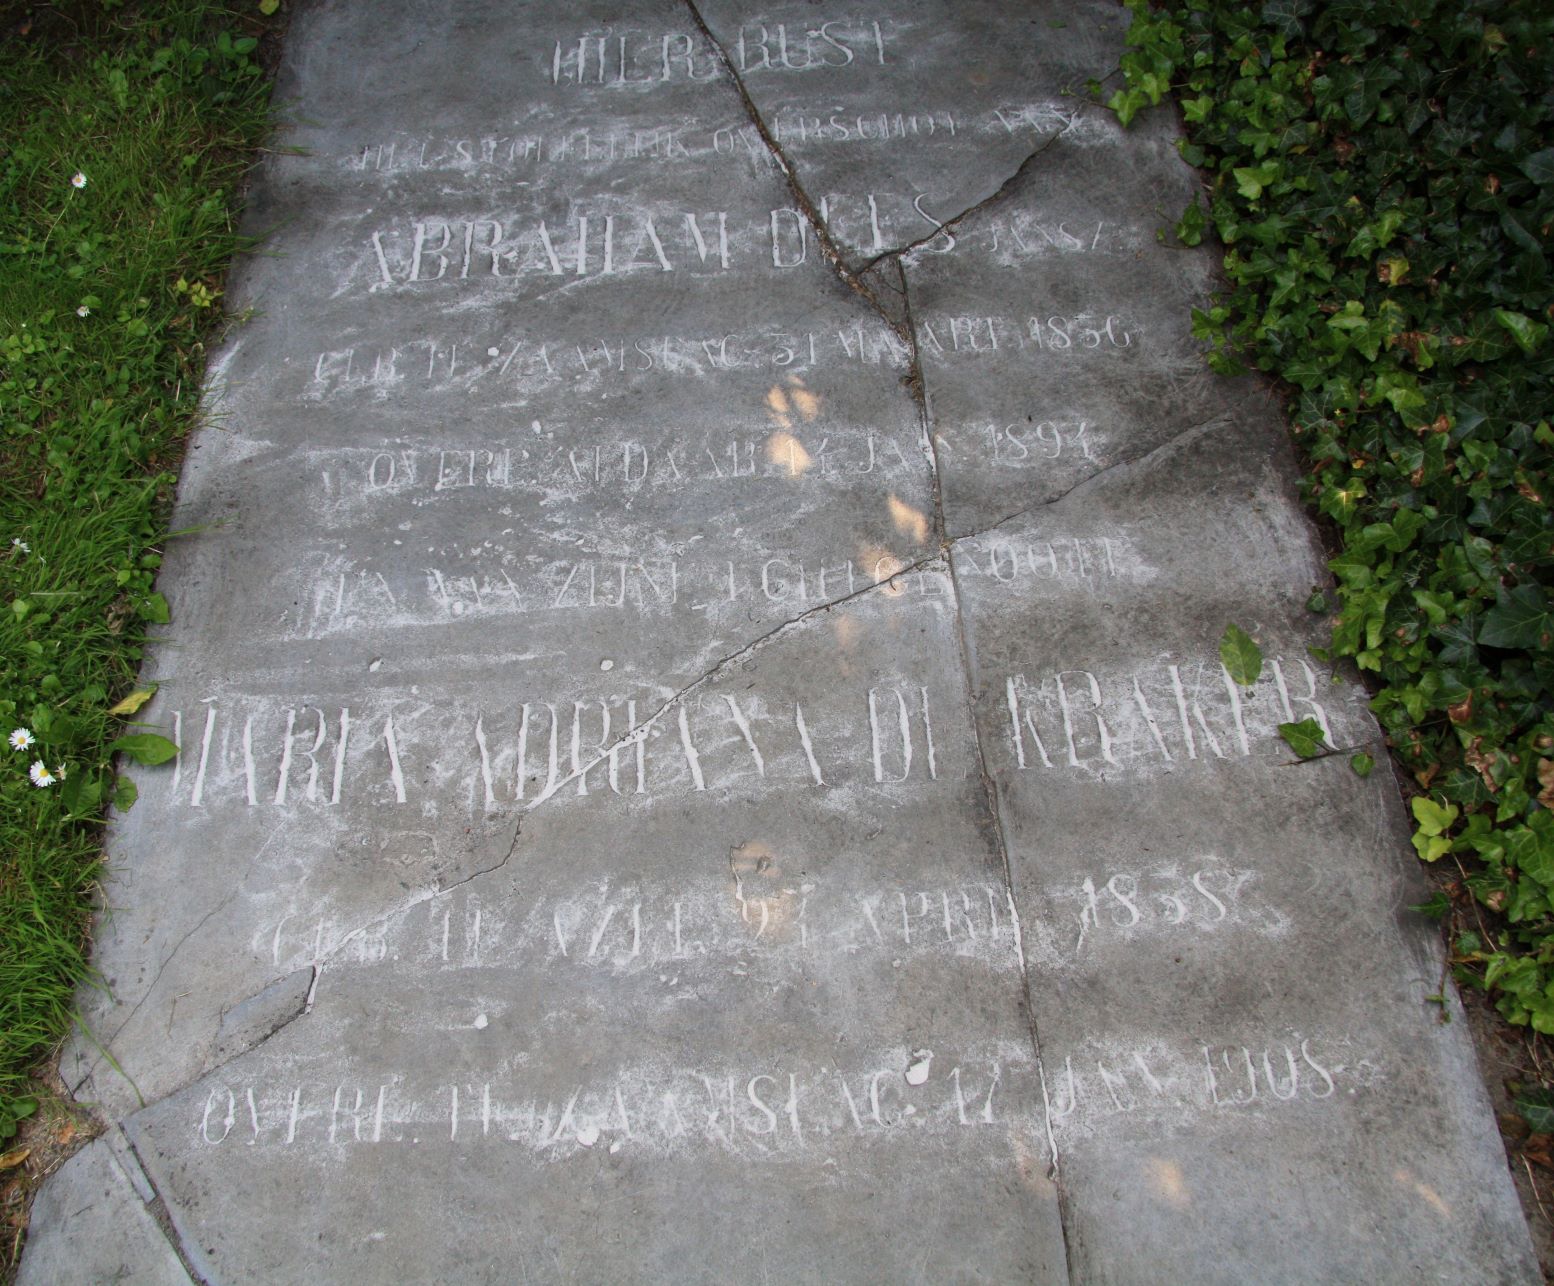 HIER RUST
HET STOFFELIJK OVERSCHOT VAN
ABRAHAM DEES JANSZ.
GEB. TE ZAAMSLAG 31 MAART 1836
OVERL. ALDAAR JAN. 1894
EN VAN ZIJNE ECHTGENOOTE
MARIA ADRIANA DE KRAKER
GEB. TE AXEL APRIL 1838
OVERL. TE ZAAMSLAG 17 JAN. 1908.